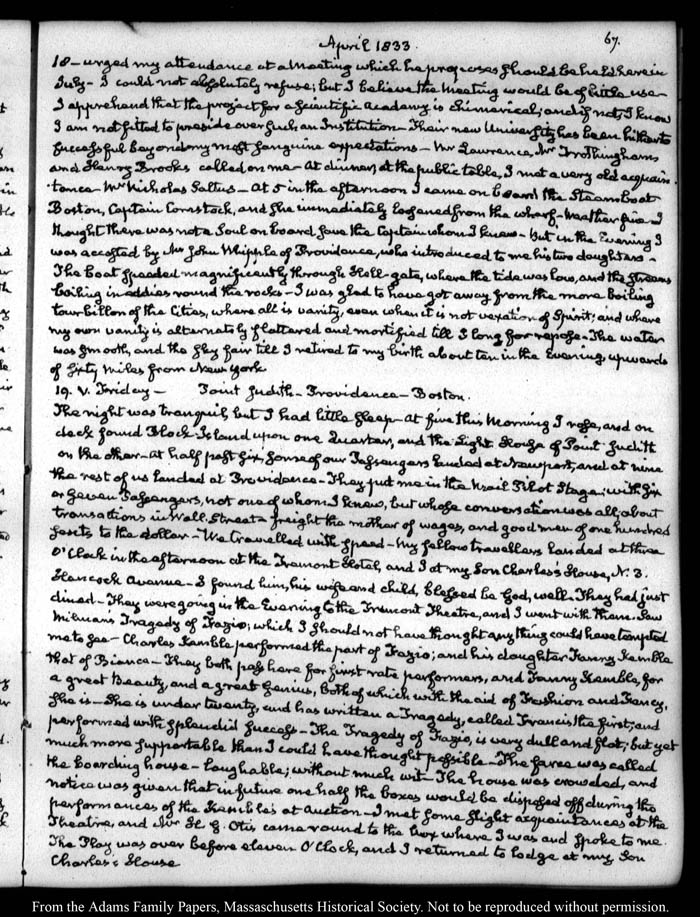 April 1833.
67.
18 - urged my attendance at a Meeting which he proposes should be held here in
July - I could not absolutely refuse; but I believe the Meeting would be of little use -
I apprehend that the project for a Scientific Academy is chimerical; and if not, I know
I am not fitted to preside over such an Institution - Their new University has been hitherto
successful beyond my most sanguine expectations - Mr Lawrence, Mr Frothingham
and Henry Brooks called on me - At dinner, at the public table, I met a very old acquain-
tance - Mr Nicholas Saltus - At 5 in the afternoon I came on board the Steam boat
Boston, Captain Comstock, and she immediately loosened from the wharf - Weather fine - I
thought there was not a Soul on board save the Captain whom I knew - But in the Evening I
was accosted by Mr John Whipple of Providence, who introduced to me his two daughters -
The Boat speeded magnificently through Hell-gate, where the tide was low, and the streams
boiling in eddies round the rocks - I was glad to have got away from the more boiling
tourbillon of the Cities, where all is vanity, even when it is not vexation of Spirit; and where
my own vanity is alternately flattered and mortified till I long for repose - The water
was smooth, and the sky fair till I retired to my birth about ten in the Evening, upwards
of sixty miles from New York
19. V. Friday - Point Judith - Providence - Boston.
The night was tranquil, but I had little sleep - At five this Morning I rose, and on
deck found Block-Island upon one Quarter, and the Light House of Point Judith
on the other - At half past six, some of our Passengers landed at Newport, and at nine
the rest of us landed at Providence - They put me in the Mail Pilot Stage; with six
or seven Passengers, not one of whom I knew, but whose conversation was all about
transactions in Wall Street - freight the mother of wages, and good men of one hundred
cents to the dollar - We travelled with speed - My fellow travellers landed at three
O'Clock in the afternoon at the Tremont Hotel, and I at my Son Charles's House, N. 3.
Hancock Avenue - I found him, his wife and child, blessed be God, well. They had just
dined - They were going in the Evening to the Tremont Theatre, and I went with them. Saw
Milman's Tragedy of Fazio; which I should not have thought any thing could have tempted
me to see - Charles Kemble performed the part of Fazio; and his daughter Fanny Kemble
that of Bianca - They both pass here for first rate performers, and Fanny Kemble, for
a great Beauty, and a great Genius, both of which with the aid of Fashion and Fancy,
she is - She is under twenty, and has written a Tragedy, called Francis the first; and
performed with splendid success - The Tragedy of Fazio, is very dull and flat; but yet
much more supportable than I could have thought possible - The farce was called
the boarding house - Laughable; without much wit - The house was crowded, and
notice was given that in future one half the boxes would be disposed off during the
performances of the Kemble's at Auction - I met some slight acquaintances at the
Theatre, and Mr H. G. Otis came round to the box where I was and spoke to me.
The Play was over before eleven O'Clock, and I returned to lodge at my Son
Charles's House
From the Adams Family Papers, Massachusetts Historical Society. Not to be reproduced without permission.